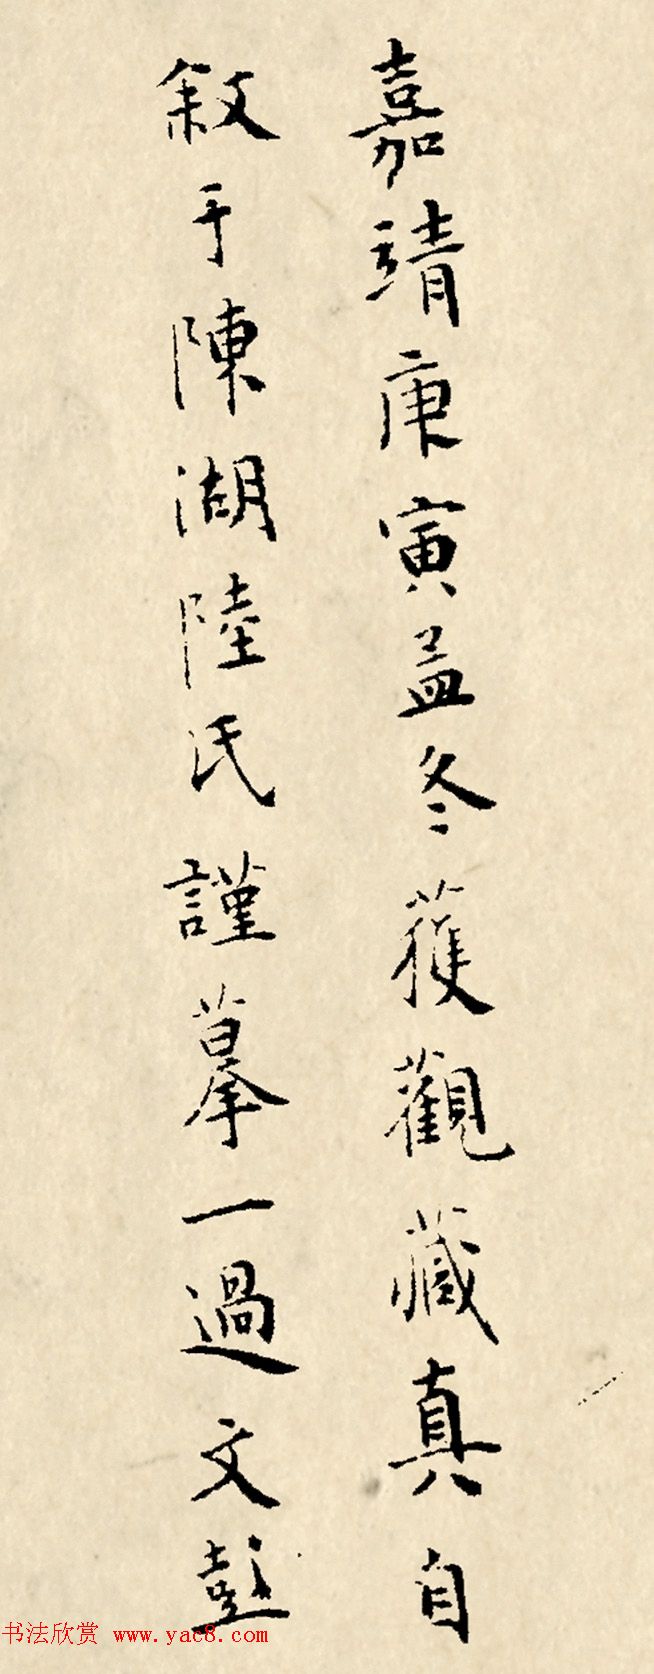 嘉靖庚寅孟冬獲觀藏真自
敘于陳湖陸氏謹摹一過文彭
书法欣赏 www.yac8.com